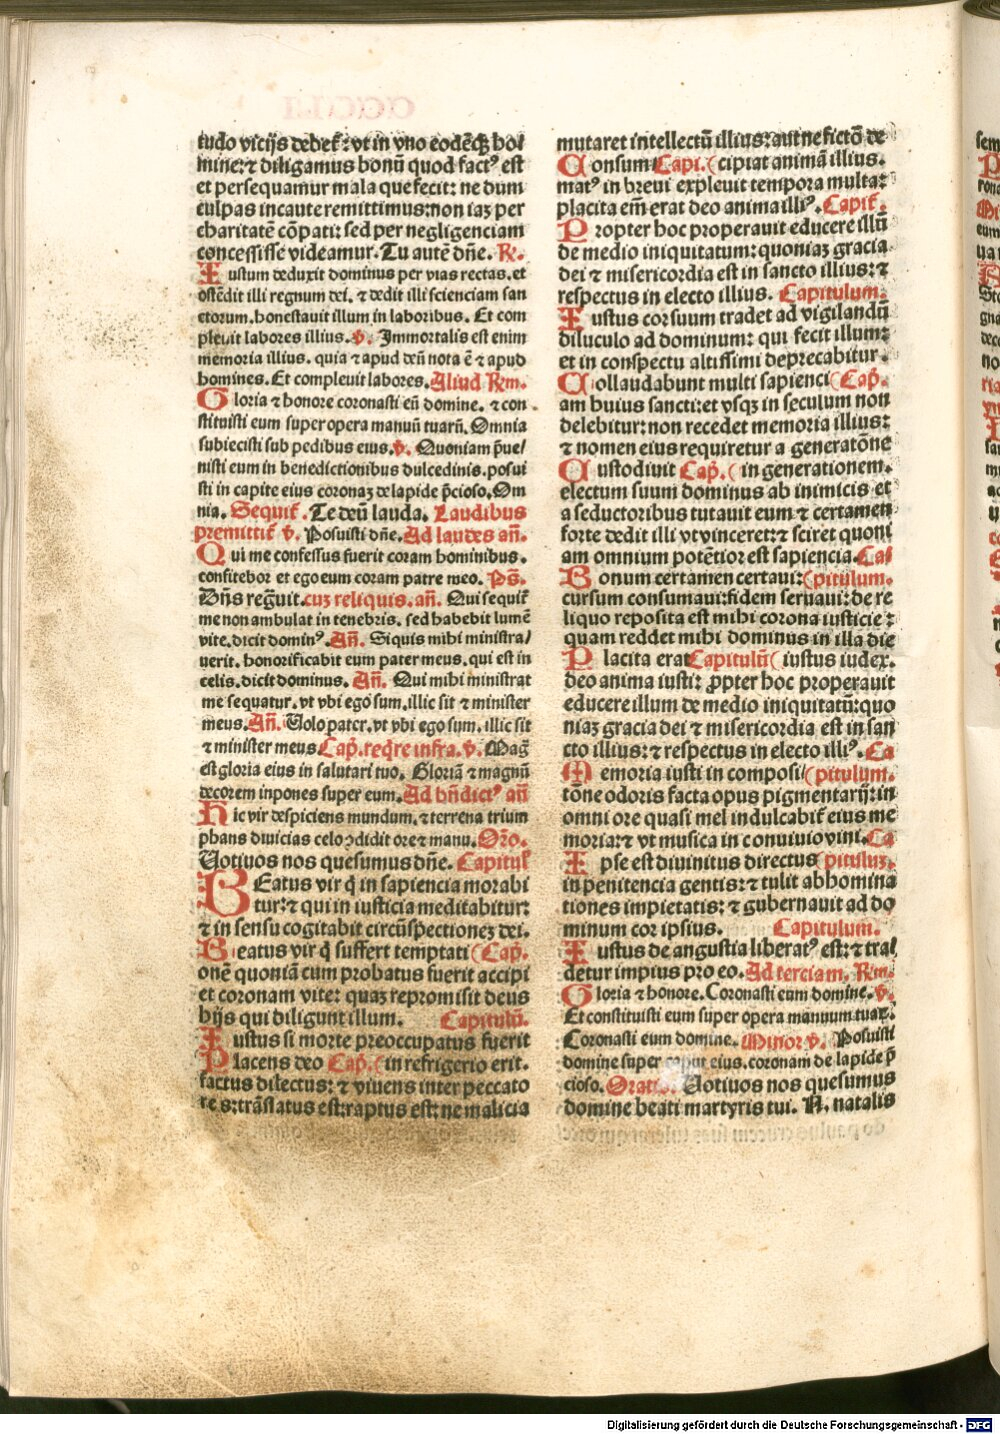 tudo vicijs debet᷑: vt in vno eodēq̄ȝ ho/
mine: ⁊ diligamus bonū quod factꝰ est
et persequamur mala que fecit: ne dum
culpas incaute remittimus: non iaȝ per
charitatē cōpati: sed per negligenciam
concessisse videamur. Tu autē dn̄e. R̷.
Iustum deduxit dominus per vias rectas. et
ostēdit illi regnum dei. ⁊ dedit illi scienciam san
ctorum. honestauit illum in laboribus. Et com
pleuit labores illius. v̷. Immortalis est enim
memoria illius. quia ⁊ apud deū nota ē ⁊ apud
homines. Et compleuit labores. Aliud Rm̄.
Gloria ⁊ honore coronasti eū domine. ⁊ con
stituisti eum super opera manuū tuarū. Omnia
subiecisti sub pedibus eius. v̷. Quoniam p̄ue/
nisti eum in benedictionibus dulcedinis. posui
sti in capite eius coronaȝ de lapide p̄cioso. Om
nia. Sequit᷑. Te deū lauda. Laudibus
premittit᷑ v̷. Posuisti dn̄e. Ad laudes an̄.
Qui me confessus fuerit coram hominibus.
confitebor et ego eum coram patre meo. Ps̄.
Dn̄s regᷠuit. cuȝ reliquis. an̄. Qui sequit᷑
me non ambulat in tenebris. sed habebit lumē
vite. dicit dominꝰ. An̄. Siquis mihi ministra/
uerit. honorificabit eum pater meus. qui est in
celis. dicit dominus. An̄. Qui mihi ministrat
me sequatur. vt vbi ego sum. illic sit ⁊ minister
meus. An̄. Uolo pater. vt vbi ego sum. illic sit
⁊ minister meus. Cap̄. reqͥre infra. v̷. Maḡ
est gloria eius in salutari tuo. Gloriā ⁊ magnū
decorem inpones super eum. Ad bn̄dictꝰ an̄
Hic vir despiciens mundum. ⁊ terrena trium
phans diuicias celo ↄdidit ore ⁊ manu. Or̄o.
Uotiuos nos quesumus dn̄e. Capitul᷑
BEatus vir q̄ in sapiencia morabi
tur: ⁊ qui in iusticia meditabitur:
⁊ in sensu cogitabit circūspectioneȝ dei.
Beatus vir q̄ suffert temptati (Cap̄.
onē quoniā cum probatus fuerit accipi
et coronam vite: quaȝ repromisit deus
hijs qui diligunt illum. Capitulū.
Iustus si morte preoccupatus fuerit
Placens deo Cap̄. (in refrigerio erit.
factus dilectus: ⁊ viuens inter peccato
res: trāslatus est: raptus est: ne malicia
mutaret intellectū illius: aut ne fictō de
Consum Capi. (cipiat animā illius.
matꝰ in breui expleuit tempora multa:
placita em̄ erat deo anima illiꝰ. Capit᷑.
Propter hoc properauit educere illū
de medio iniquitatum: quoniaȝ gracia
dei ⁊ misericordia est in sancto illius: ⁊
respectus in electo illius. Capitulum.
Iustus cor suum tradet ad vigilandū
diluculo ad dominum: qui fecit illum:
et in conspectu altissimi deprecabitur.
Collaudabunt multi sapienci (Cap̄.
am huius sancti: et vsqȝ in seculum non
delebitur: non recedet memoria illius:
⁊ nomen eius requiretur a generatōne
Custodiuit Cap̄. (in generationem.
electum suum dominus ab inimicis et
a seductoribus tutauit eum ⁊ certamen
forte dedit illi vt vinceret: ⁊ sciret quoni
am omnium potētior est sapiencia. Ca/
Bonum certamen certaui: (pitulum.
cursum consumaui: fidem seruaui: de re
liquo reposita est mihi corona iusticie:
quam reddet mihi dominus in illa die
Placita erat Capitulū (iustus iudex.
deo anima iusti: ꝓpter hoc properauit
educere illum de medio iniquitatū: quo
niaȝ gracia dei ⁊ misericordia est in san
cto illius: ⁊ respectus in electo illiꝰ. Ca
Memoria iusti in composi/ (pitulum.
tōne odoris facta opus pigmentarij: in
omni ore quasi mel indulcabit᷑ eius me
moria: ⁊ vt musica in conuiuio vini. Ca
Ipse est diuinitus directus (pituluȝ.
in penitencia gentis: ⁊ tulit abhomina
tiones impietatis: ⁊ gubernauit ad do
minum cor ipsius. Capitulum.
Iustus de angustia liberatꝰ est: ⁊ tra/
detur impius pro eo. Ad terciam. Rm̄.
Gloria ⁊ honore. Coronasti eum domine. v̷.
Et constituisti eum super opera manuum tuaꝝ.
Coronasti eum domine. Minor v̷. Posuisti
domine super caput eius. coronam de lapide p̄
cioso. Oratio. Uotiuos nos quesumus
domine beati martyris tui. N. natalis
Digitalisierung gefördert durch die Deutsche Forschungsgemeinschaft - DFG